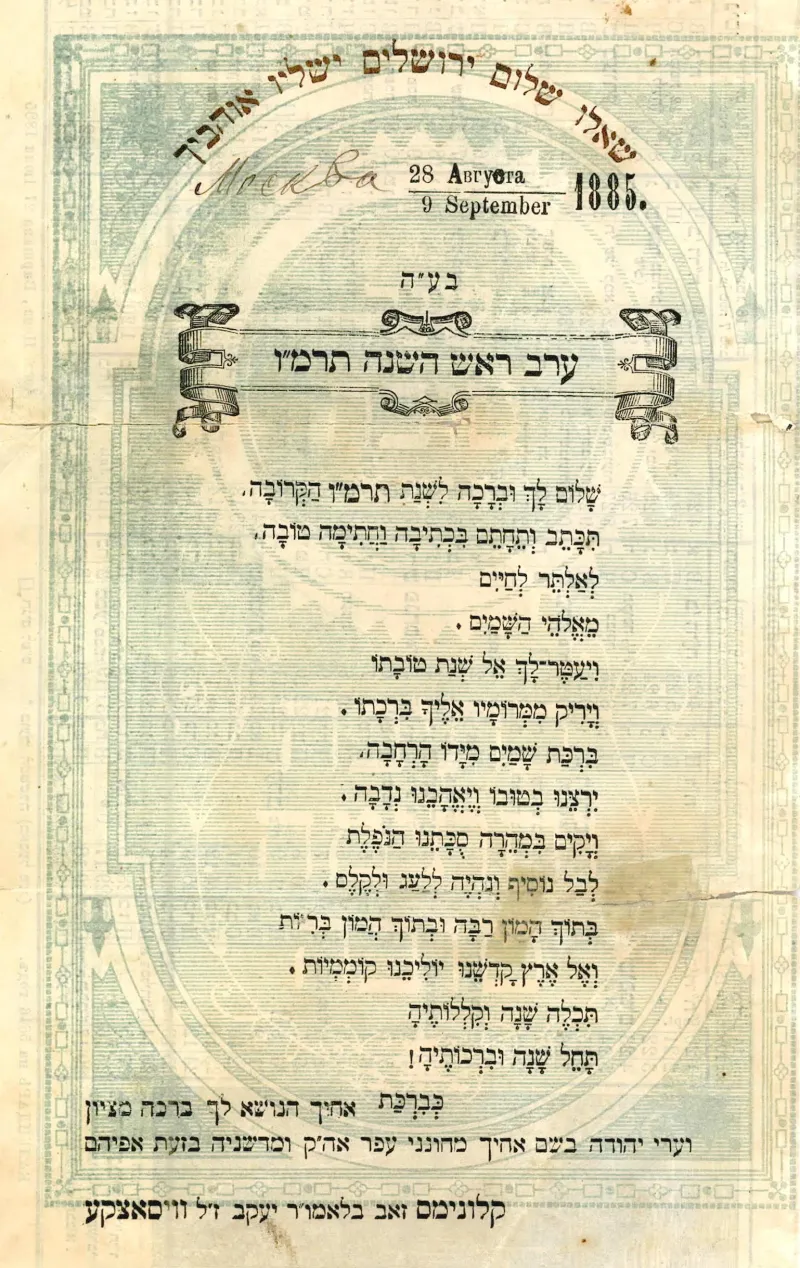 שאלו שלום ירושלים ישליו אוהביך
Москва 28 Августа 1885.
9 September
בע״ה
ערב ראש השנה תרמ״ו
שָׁלוֹם לָךְ וּבְרָכָה לִשְׁנַת תרמ״ו הַקְּרוֹבָה,
תִּכָּתֵב וְתֵחָתֵם בִּכְתִיבָה וַחֲתִימָה טוֹבָה,
לְאַלְתַּר לְחַיִּים
מֵאֱלֹהֵי הַשָּׁמַיִם .
וִיעַטֶּר־לָךְ אֵל שְׁנַת טוֹבָתוֹ
וְיָרִיק מִמְּרוֹמָיו אֵלֶיךָ בִּרְכָתוֹ .
בִּרְכַּת שָׁמַיִם מִיָּדוֹ הָרְחָבָה,
יִרְצֵנוּ בְטוּבוֹ וְיֶאֱהָבֵנוּ נְדָבָה .
וְיָקִים בִּמְהֵרָה סֻכָּתֵנוּ הַנֹּפֶלֶת
לְבַל נוֹסִיף וְנִהְיֶה לְלַעַג וּלְקֶלֶס .
בְּתוֹךְ הָמוֹן רַבָּה וּבְתוֹךְ הֲמוֹן בְּרִיּוֹת
וְאֶל אֶרֶץ קָדְשֵׁנוּ יוֹלִיכֵנוּ קוֹמְמִיּוּת .
תִּכְלֶה שָׁנָה וְקִלְלוֹתֶיהָ
תָּחֵל שָׁנָה וּבִרְכוֹתֶיהָ!
כְּבִרְכַּת אחיך הנושא לך ברכה מציון
וערי יהודה בשם אחיך מחונני עפר אה״ק ומדשניה בזעת אפיהם
קלונימס זאב בלאמו״ר יעקב ז״ל וויסאצקע